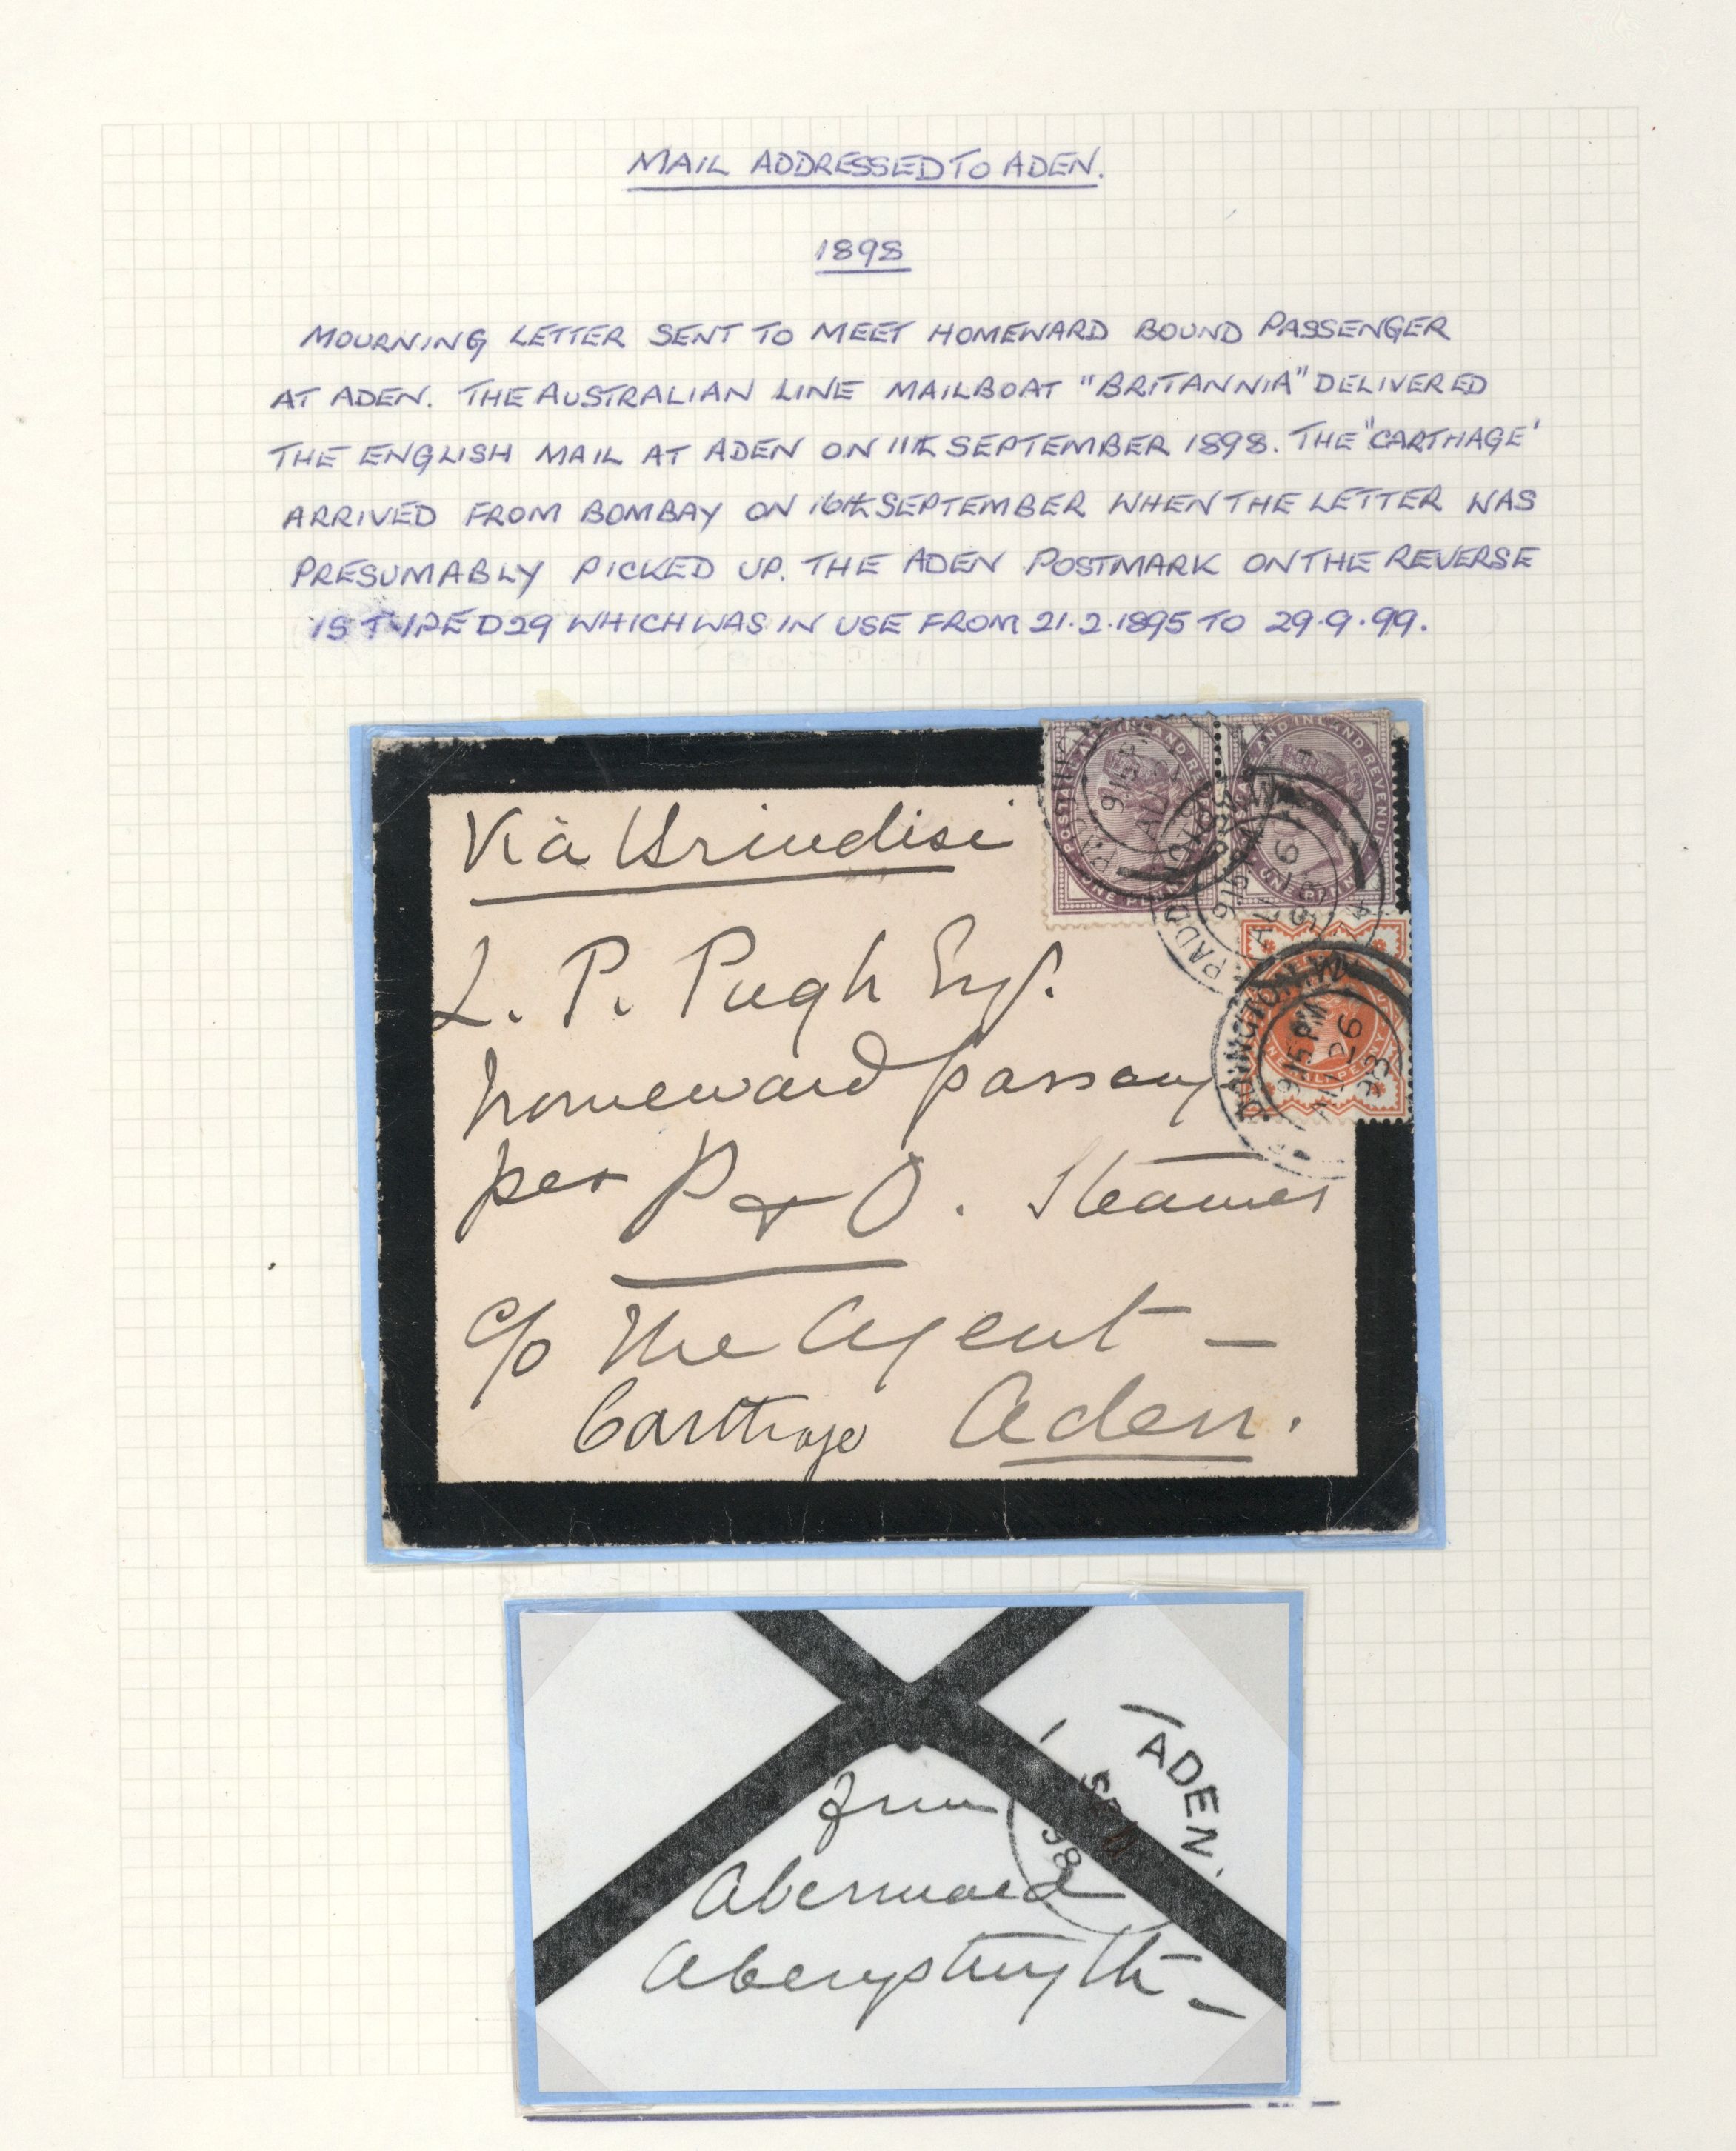 MAIL ADDRESSED TO ADEN.
1898
MOURNING LETTER SENT TO MEET HOMEWARD BOUND PASSENGER
AT ADEN. THE AUSTRALIAN LINE MAILBOAT "BRITANNIA" DELIVERED
THE ENGLISH MAIL AT ADEN ON 11th SEPTEMBER 1898. THE "CARTHAGE'
ARRIVED FROM BOMBAY ON 16th SEPTEMBER WHEN THE LETTER WAS
PRESUMABLY PICKED UP. THE ADEN POSTMARK ON THE REVERSE
IS TYPE D29 WHICH WAS IN USE FROM 21.2.1895 TO 29.9.99.
Via Brindisi
L. P. Pugh Esq.
homeward passage
per P & O. Steamer
c/o The Agent –
Carthage Aden.
POSTAGE AND INLAND REVENUE
ONE PENNY
AND INLAND REVENUE
ONE PENNY
9 15 PM
AU 26
98
PADDINGTON. W
9 15 PM
AU 26
98
ADEN.
SEP
98
from
Abermaed
Aberystwyth –